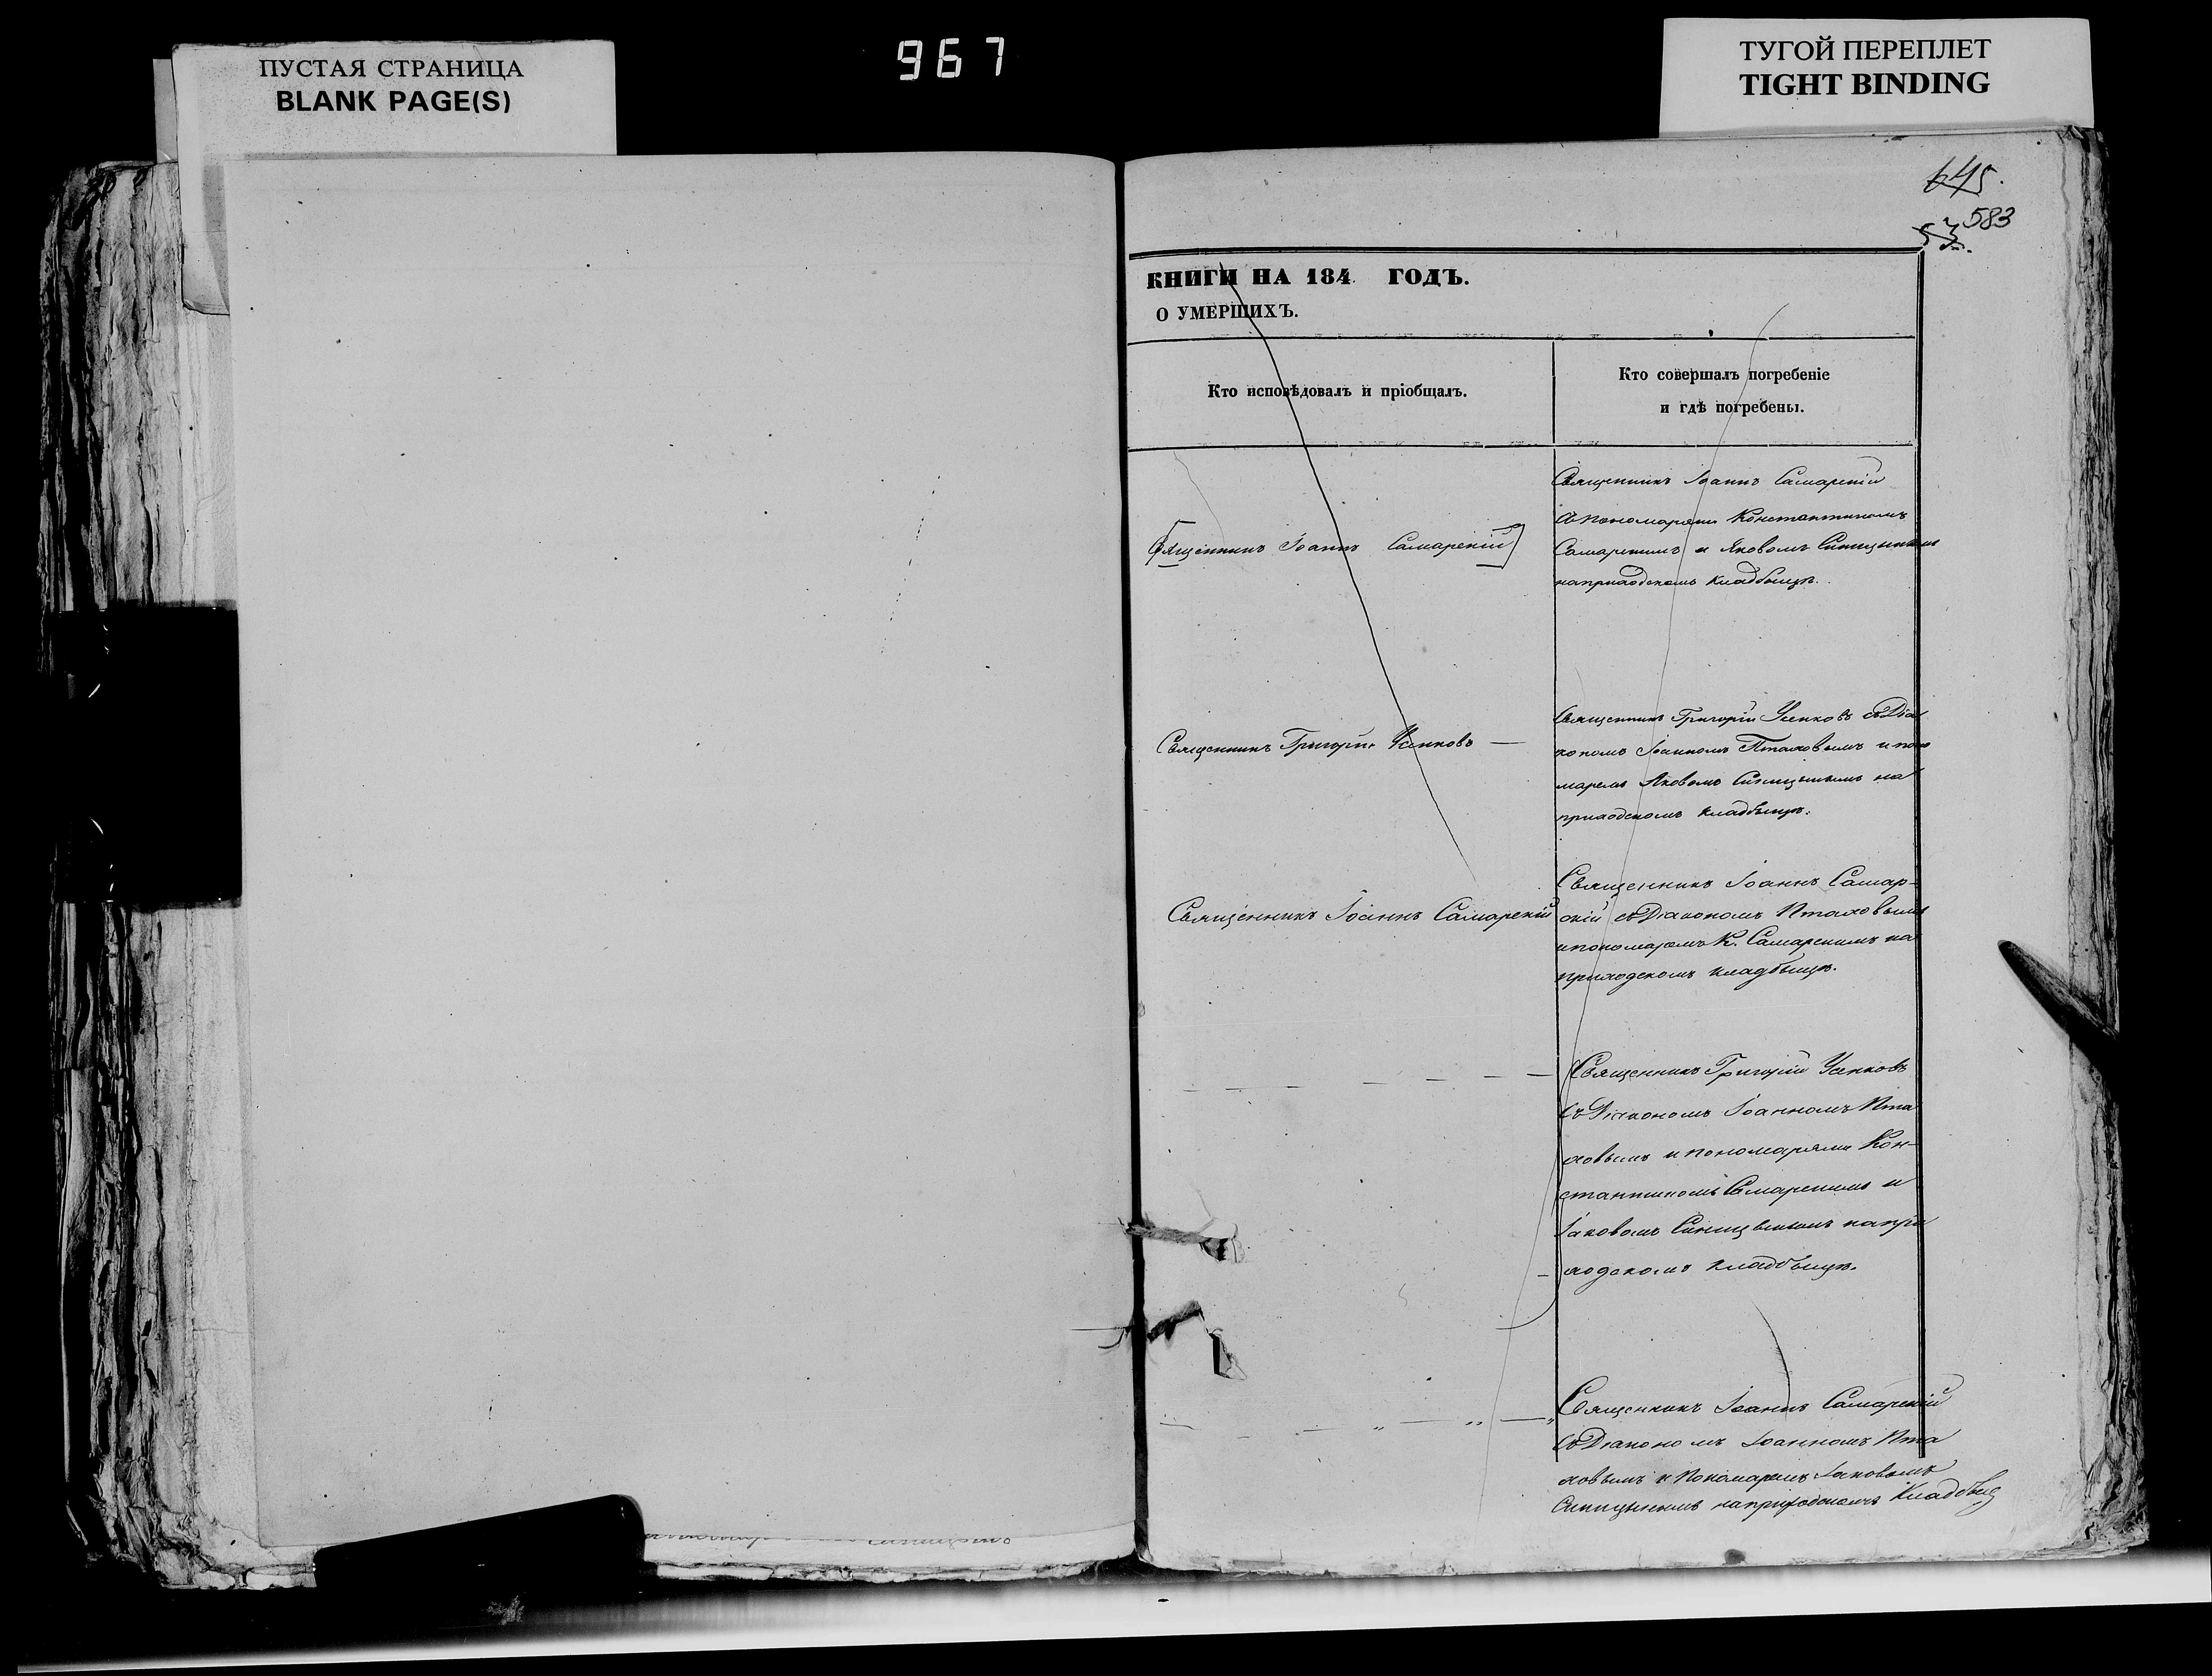 ПУСТАЯ СТРАНИЦА
BLANK PAGE(S)
967
ТУГОЙ ПЕРЕПЛЕТ
TIGHT BINDING
645.
53.
583
КНИГИ НА 184 ГОДЪ.
О УМЕРШИХЪ.
Кто исповѣдовалъ и пріобщалъ.
Кто совершалъ погребеніе
и гдѣ погребены.
Священникъ Іоаннъ Самарскій
Священникъ Іоаннъ Самарскій
съ пономарями Константиномъ
Самарскимъ и Яковомъ Синицынымъ
на приходскомъ кладбищѣ.
Священникъ Григорій Усенковъ
Священникъ Григорій Усенковъ съ Діа
кономъ Іоанномъ Птаховымъ и поно
маремъ Яковомъ Синицынымъ на
приходскомъ кладбищѣ.
Священникъ Іоаннъ Самарскій
Священникъ Іоаннъ Самар-
скій съ Діакономъ Птаховымъ
и пономаремъ К. Самарскимъ на
приходскомъ кладбищѣ.
Священникъ Григорій Усенковъ
съ Діакономъ Іоанномъ Пта
ховымъ и пономарями Кон-
стантиномъ Самарскимъ и
Іаковомъ Синицынымъ на при
ходскомъ кладбищѣ.
Священникъ Іоаннъ Самарскій
съ Діакономъ Іоанномъ Пта
ховымъ и Пономаремъ Іаковомъ
Синицынымъ на приходскомъ Кладбищ